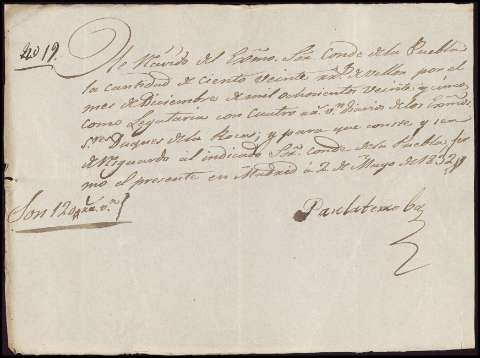 No 19.
He Recivido del Exmo. Sor. Conde de la Puebla
la cantidad de ciento veinte rs. de vellon por el
mes de Diciembre de mil ochocientos veinte y cinco
como Legataria con cuatro rs. vn. diarios de los Exmos.
Sres. Duques de la Roca; y para que conste y sea
de resguardo al indicado Sor. conde de la Puebla, fir
mo el presente en Madrid á 2 de Mayo de 1832
Son 120 rs. vn.